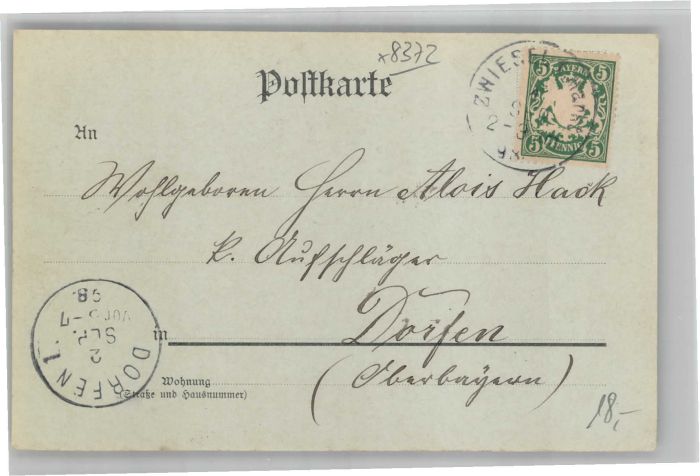 x8372
Postkarte
ZWIESEL
98.
5 BAYERN 5
5 PFENNIG 5
An
Wohlgeboren Herrn Alois Hack
k. Aufschläger
in Dorfen
(Oberbayern)
DORFEN 1.
2
SEP.
VOR 6-7
98.
Wohnung
(Straße und Hausnummer)
18,-